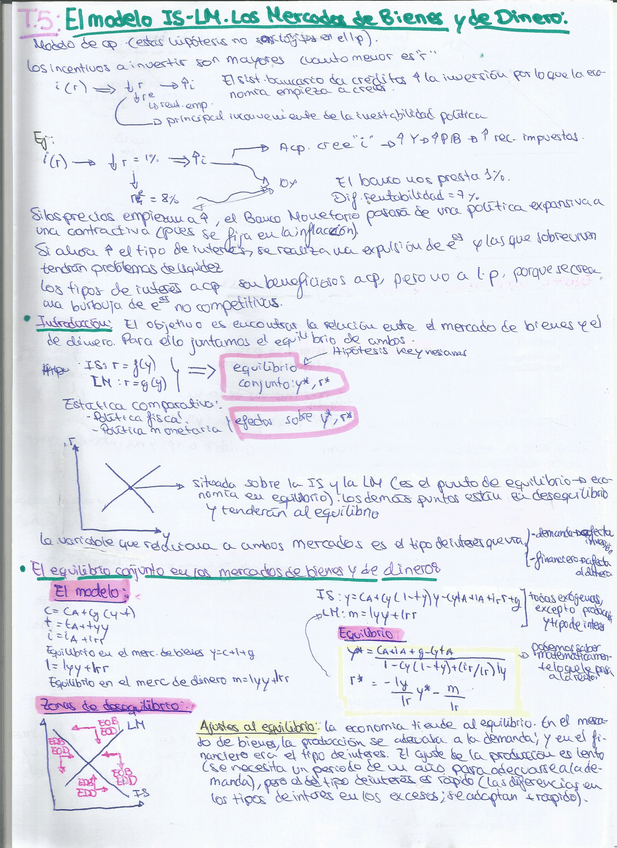 T.5: El modelo IS-LM. Los Mercados de Bienes y de Dinero:
Modelo de cp. (estas hipótesis no en el lp).
Los incentivos a invertir son mayores cuanto menor es "r"
i(r) → ↓r → ↑i
El sist. bancario da créditos ↑ la inversión por lo que la eco-
nomía empieza a crecer.
↓re
→ principal inconveniente de la inestabilidad política
Ej:
i(r) → ↓r = 1% → ↑i
→ Acp. cree "i" → ↑Y → ↑PIB → ↑ rec. impuestas.
re = 8%
El banco nos presta 1%.
Dif. rentabilidad = 7%
Si los precios empiezan a ↑, el Banco Monetario pasará de una política expansiva a
una contractiva (pues se fija en la inflación)
Si ahora ↑ el tipo de interés, se realiza una expulsión de eas y las que sobreviven
tendrán problemas de liquidez
Los tipos de interés acp son beneficiosos acp, pero no a l.p, porque se crea
una burbuja de eas no competitivas.
• Introducción: El objetivo es encontrar la relación entre el mercado de bienes y el
de dinero. Para ello juntamos el equilibrio de ambos.
Hipótesis keynesiana
IS: r = f(y)
LM: r = g(y)
⇒ equilibrio
conjunto: y*, r*
Estática comparativa:
- Política fiscal
- Política monetaria
efectos sobre y*, r*
r
y
→ situada sobre la IS y la LM (es el punto de equilibrio → eco-
nomía en equilibrio). Los demás puntos están en desequilibrio
y tenderán al equilibrio
La variable que relaciona a ambos mercados es el tipo de interés que va
- demanda → afecta
inversión
- financiero → afecta
al dinero
• El equilibrio conjunto en los mercados de bienes y de dinero:
El modelo:
C = CA + Cy (y-t)
t = tA + tyy
i = iA + irr
Equilibrio en el merc. de bienes y = c+i+g
l = lyy + lrr
Equilibrio en el merc de dinero m = lyy + lrr
IS: y = CA + Cy (1-ty) y - CytA + iA + irr + g
LM: m = lyy + lrr
todas exógenas,
excepto produc.
y tipo de interés
Equilibrio
y* = CA + iA + g - CytA
1 - Cy(1-ty) + (ir/lr) ly
r* = -ly/lr y* - m/lr
podemos saber
matemáticamen-
te lo que le pasa
al dinero
Zonas de desequilibrio:
LM
IS
EOB
EOD
EDB
EDD
Ajustes al equilibrio: la economía tiende al equilibrio. En el merca-
do de bienes, la producción se adecuaba a la demanda; y en el fi-
nanciero era el tipo de interés. El ajuste de la producción es lento
(se necesita un periodo de un año para adecuarse a la de-
manda), pero al del tipo de interés es rápido (las diferencias en
los tipos de interés en los excesos; se adaptan + rápido).